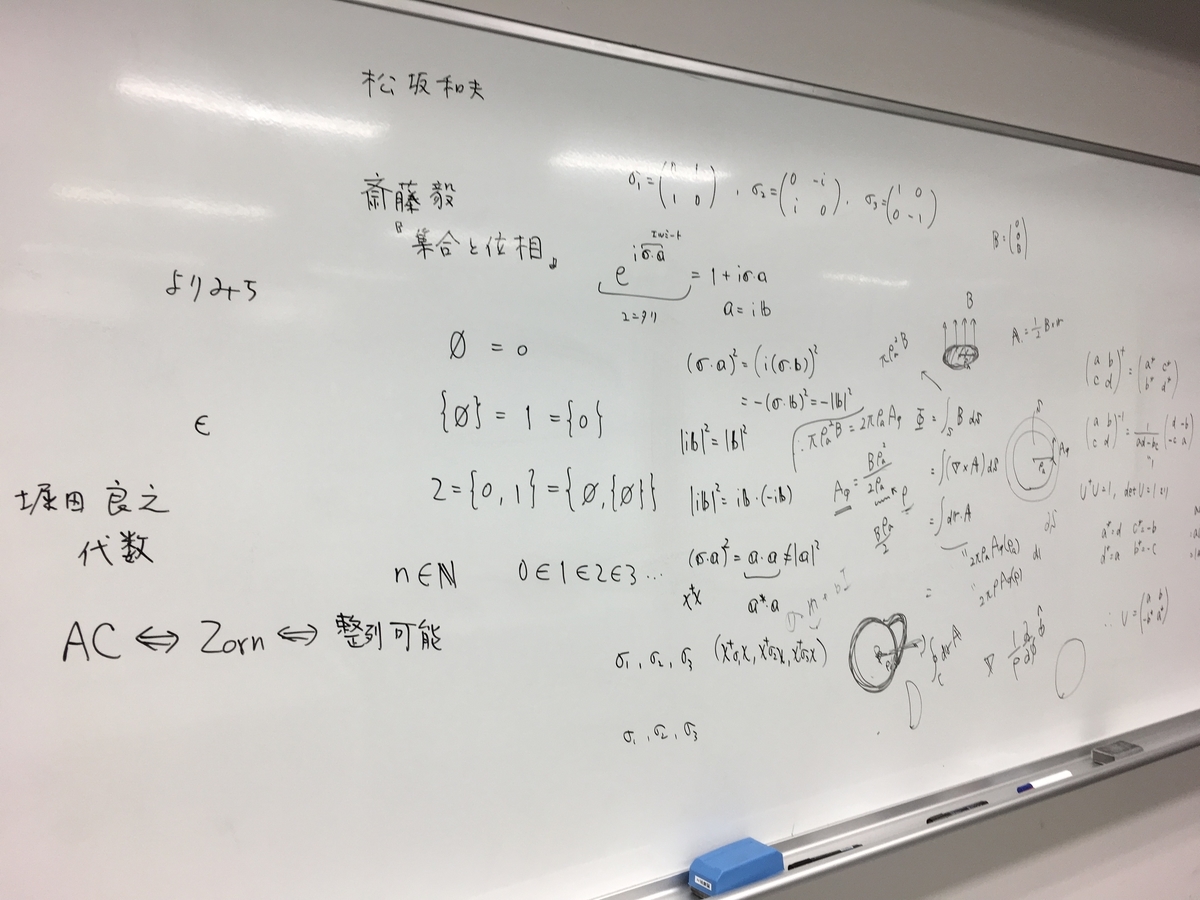 松坂和夫
斎藤毅
『集合と位相』
よりみち
∅ = 0
{∅} = 1 = {0}
∈
2 = {0, 1} = {∅, {∅}}
堀田良之
代数
n ∈ ℕ 0 ∈ 1 ∈ 2 ∈ 3 …
AC ⇔ Zorn ⇔ 整列可能
σ₁ = (0 1 / 1 0), σ₂ = (0 -i / i 0), σ₃ = (1 0 / 0 -1)
e^{iσ·a} = 1 + iσ·a
a = ib
(σ·a)² = (i(σ·b))²
= -(σ·b)² = -|b|²
|ib|² = |b|²
|ib|² = ib·(-ib)
(σ·a)² = a·a ≠ |a|²
a*·a
σ₁, σ₂, σ₃ (χ†σ₁χ, χ†σ₂χ, χ†σ₃χ)
σ₁, σ₂, σ₃
B = (0 / 0 / B)
B
A = ½ B×r
πρₐ²B
∴ πρₐ²B = 2πρₐAφ
Φ = ∫_S B dS
= ∫(∇×A) dS
= ∫dr·A
Aφ = Bρₐ²/2ρₐ
Bρₐ/2
2πρₐAφ(ρₐ)
2πρAφ(ρ)
∮_C dr A
(a b / c d)† = (a* c* / b* d*)
(a b / c d)⁻¹ = 1/(ad-bc) (d -b / -c a)
U†U = 1, det U = 1
a* = d c* = -b
d* = a b* = -c
∴ U = (a b / -b* a*)